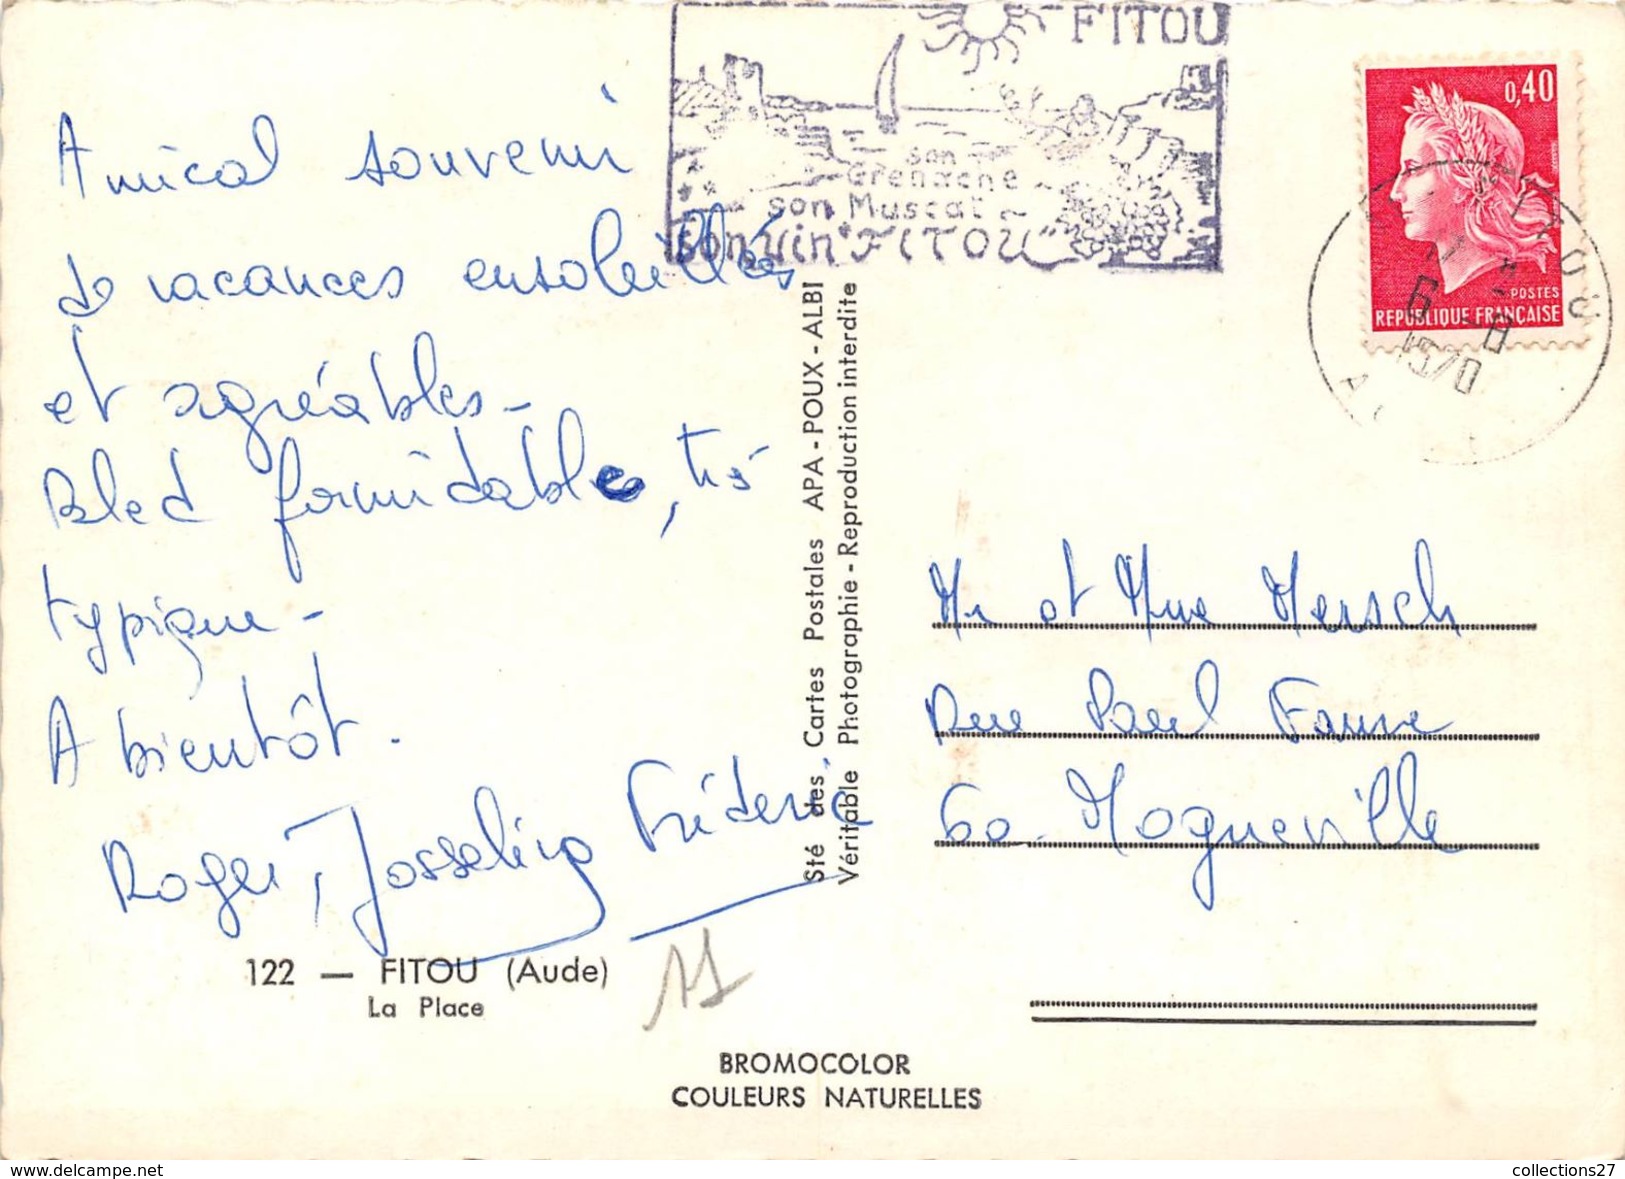 Amical souvenir
de vacances ensoleillées
et agréables -
Bled formidable, très
typique -
A bientôt.
Roger, Josseling Fréderic
122 — FITOU (Aude)
La Place
11
BROMOCOLOR
COULEURS NATURELLES
Sté des Cartes Postales APA - POUX - ALBI
Véritable Photographie - Reproduction interdite
FITOU
son
Grenache
son Muscat
son vin "FITOU"
0,40
POSTES
REPUBLIQUE FRANÇAISE
FITOU
6 - 8
1970
Mr et Mme Mersch
Rue Paul Faure
60 - Mogneville
collections27
www.delcampe.net